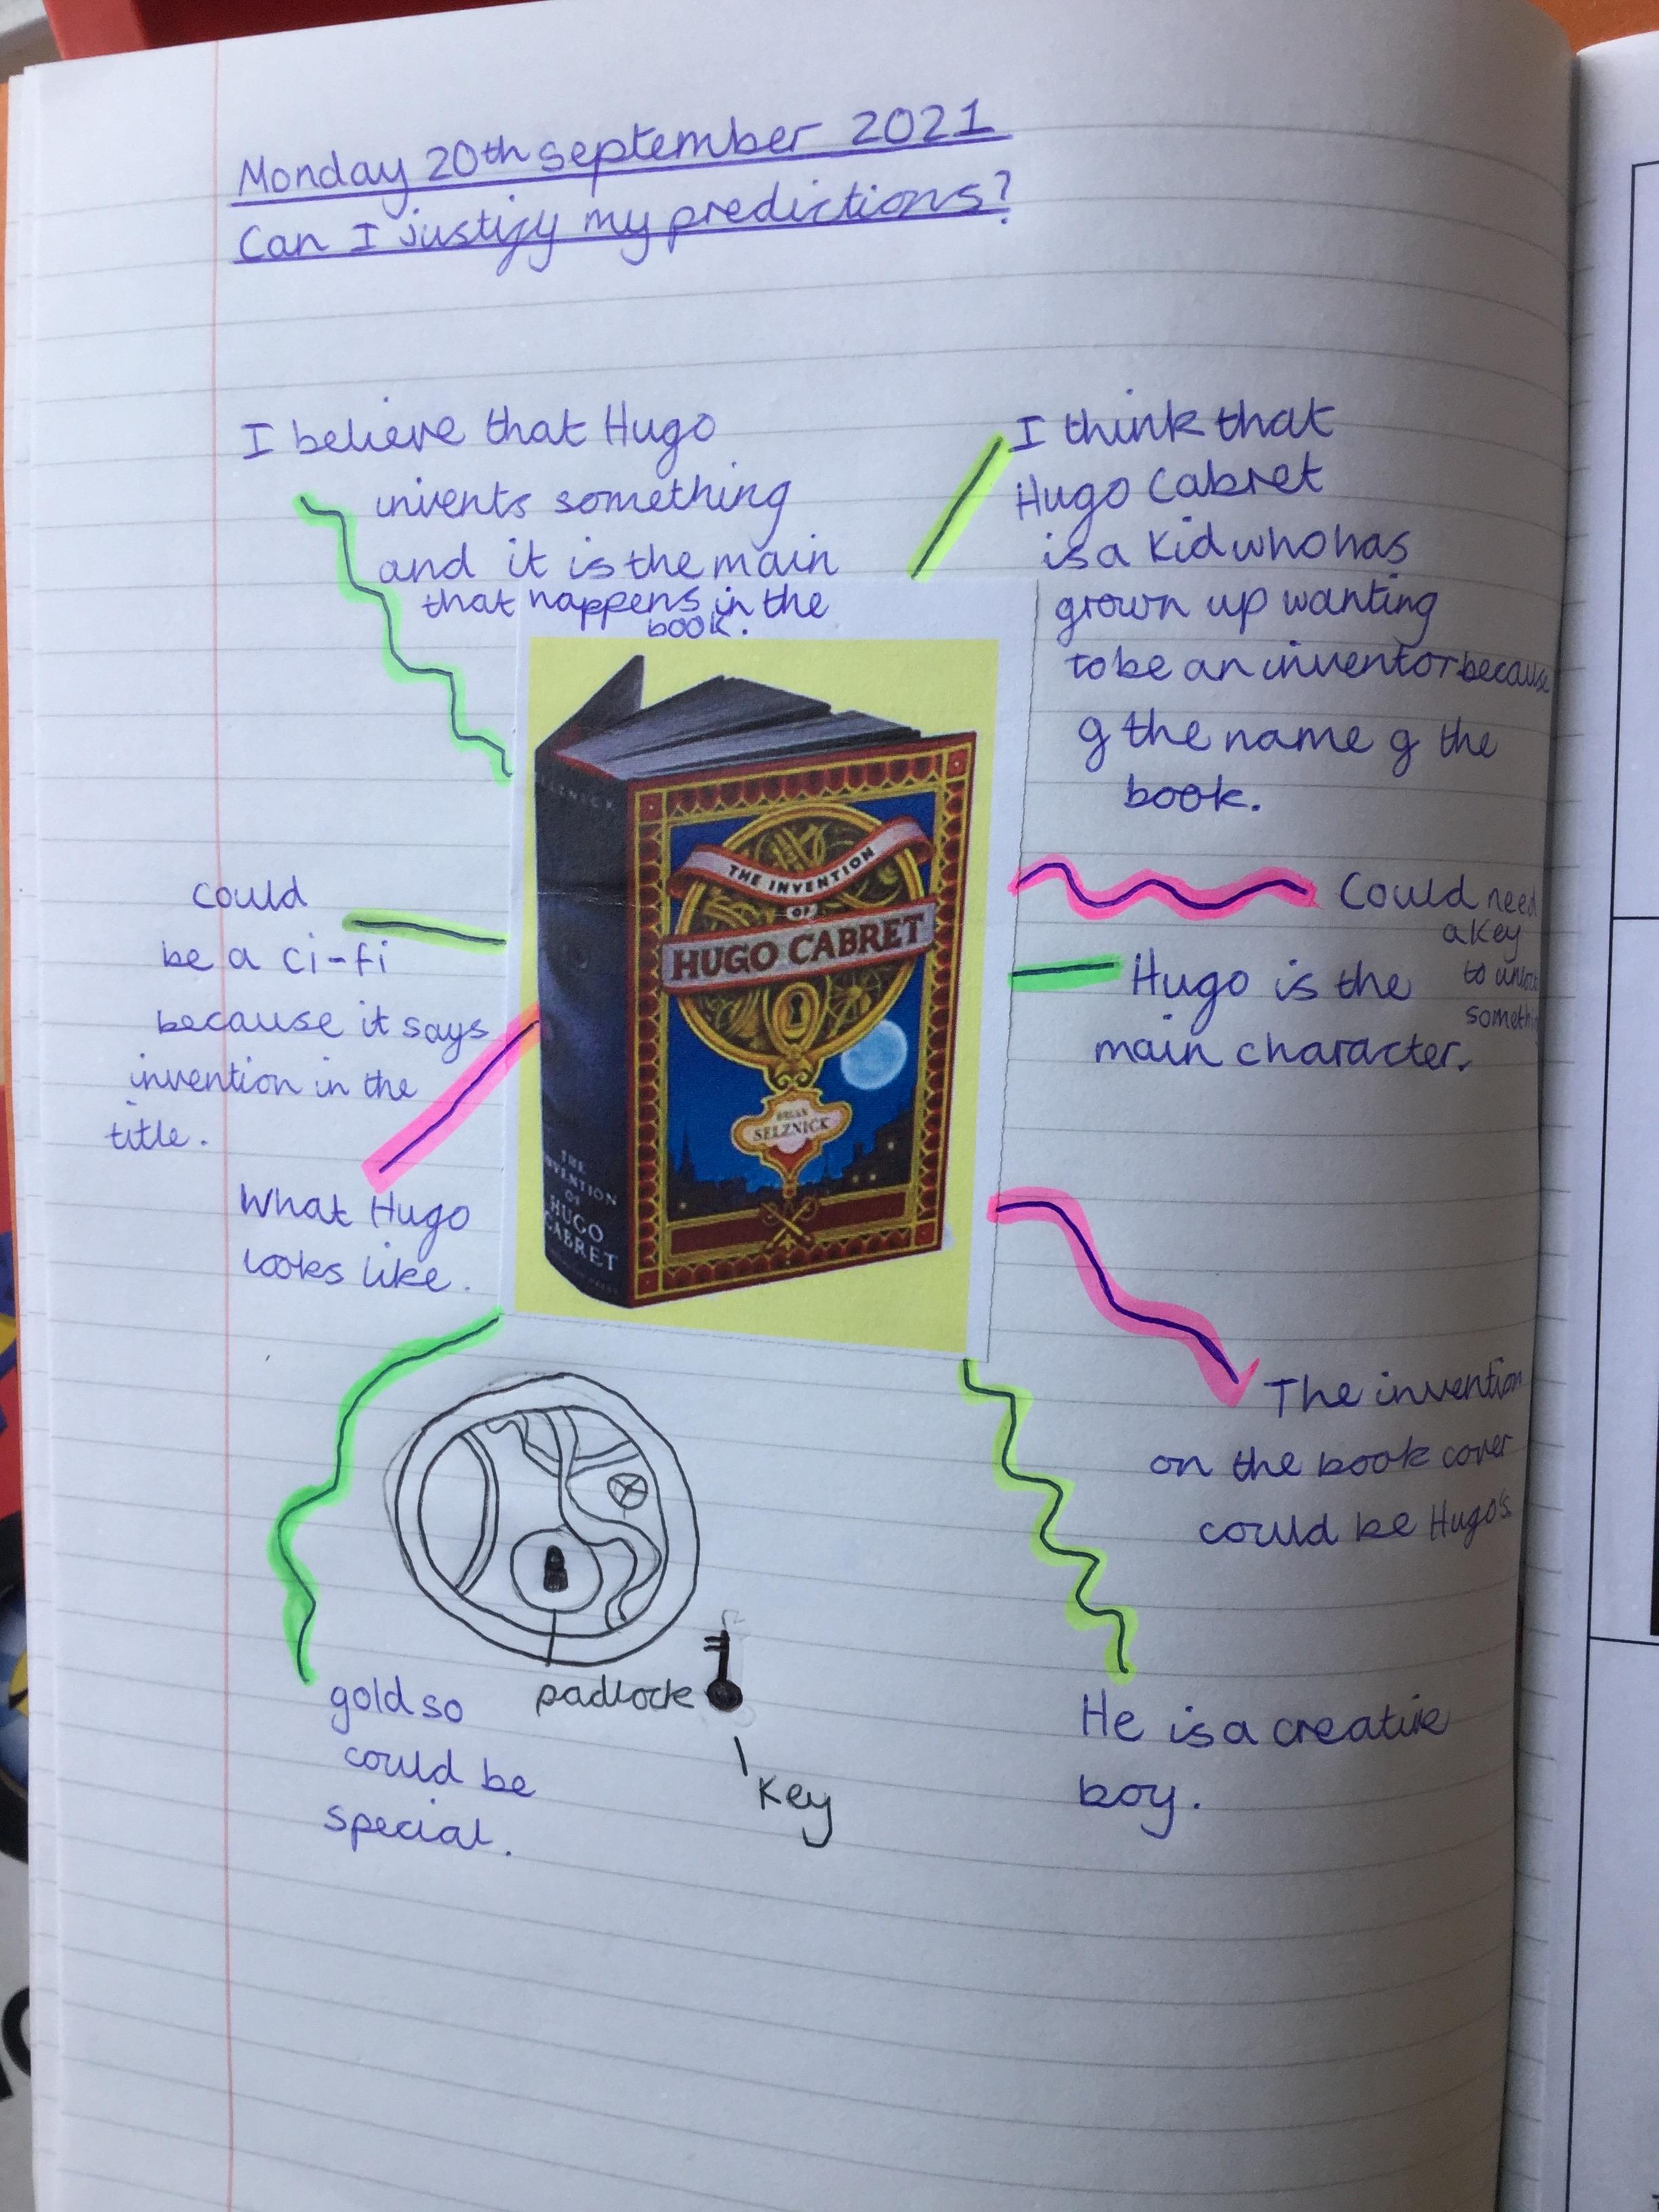 Monday 20th september 2021
Can I justify my predictions?
I believe that Hugo
invents something
and it is the main
that happens in the
book.
I think that
Hugo Cabret
is a kid who has
grown up wanting
to be an inventor because
of the name of the
book.
could
be a ci-fi
because it says
invention in the
title.
What Hugo
looks like.
THE INVENTION
OF
HUGO CABRET
BRIAN
SELZNICK
THE
INVENTION
OF
HUGO
CABRET
Could need
a key
to
Hugo is the
main character.
The invention
on the book cover
could be Hugo's
gold so
could be
special.
padlock
Key
He is a creative
boy.